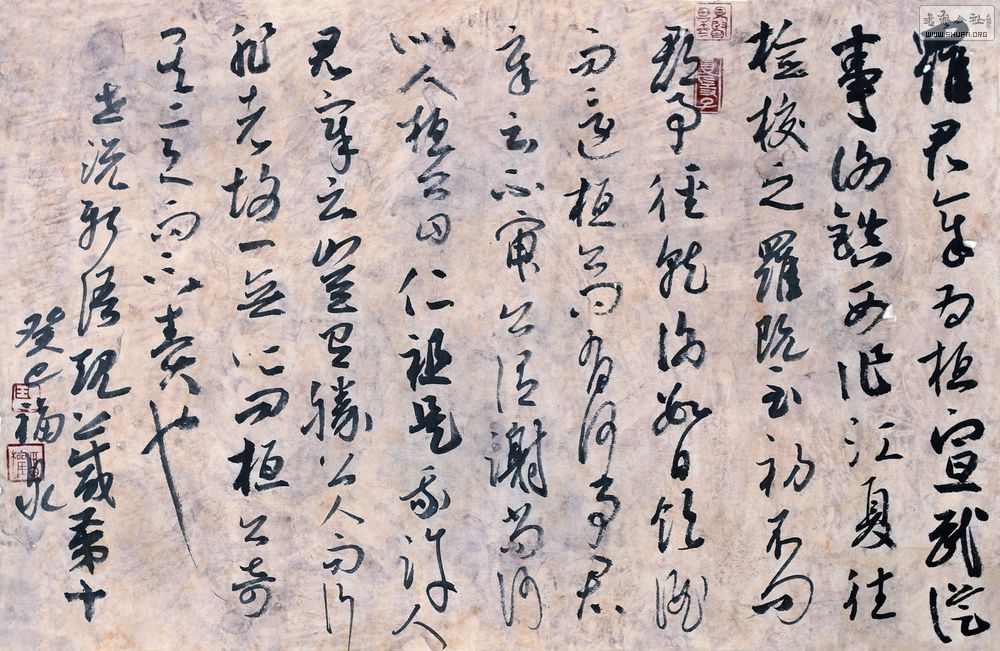 羅君章为桓宣武從
事謝鎮西作江夏往
檢校之羅既至初不问
郡事徑就謝數日飲酒
而還桓公问有何事君
章云不審公謂謝尚何
似人桓公曰仁祖是我許人
君章云豈有勝公人而行
非者故一無所问桓公奇
其意而不責也
世說新語規箴第十
癸巳福
书法公社
WWW.SHUFA.ORG